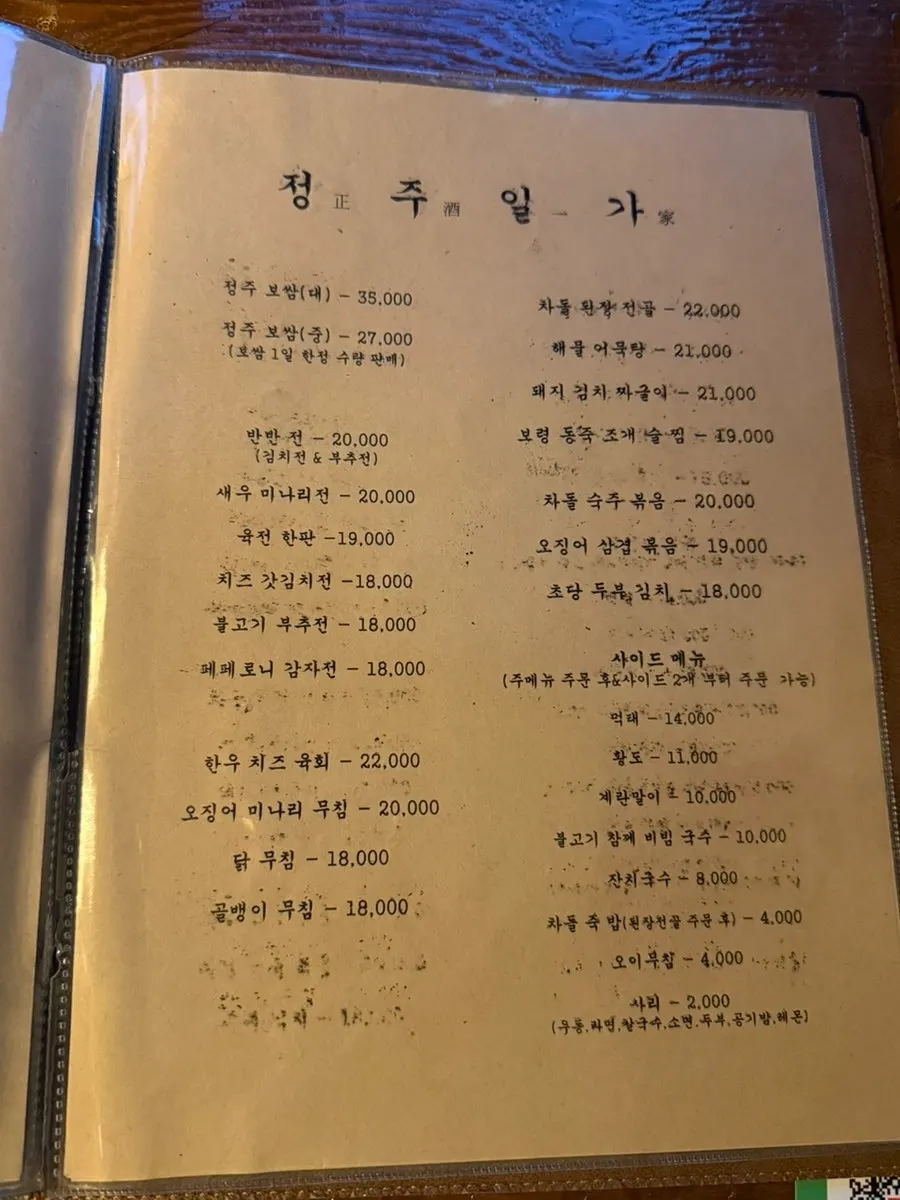 정 正 주 酒 일 一 가 家
정주 보쌈(대) - 35,000
정주 보쌈(중) - 27,000
(보쌈 1일 한정 수량 판매)
반반 전 - 20,000
(김치전 & 부추전)
새우 미나리전 - 20,000
육전 한판 -19,000
치즈 갓김치전 -18,000
불고기 부추전 - 18,000
페페로니 감자전 - 18,000
한우 치즈 육회 - 22,000
오징어 미나리 무침 - 20,000
닭 무침 - 18,000
골뱅이 무침 - 18,000
차돌 된장 전골 - 22,000
해물 어묵탕 - 21,000
돼지 김치 짜글이 - 21,000
보령 동죽 조개 술 찜 - 19,000
차돌 숙주 볶음 - 20,000
오징어 삼겹 볶음 - 19,000
초당 두부 김치 - 18,000
사이드 메뉴
(주메뉴 주문 후&사이드 2개 부터 주문 가능)
먹태 - 14,000
황도 - 11,000
계란말이 - 10,000
불고기 참깨 비빔 국수 - 10,000
잔치국수 - 8,000
차돌 죽 밥(된장전골 주문 후) - 4,000
오이부참 - 4,000
사리 - 2,000
(우동,라면,칼국수,소면,두부,공기밥,레몬)